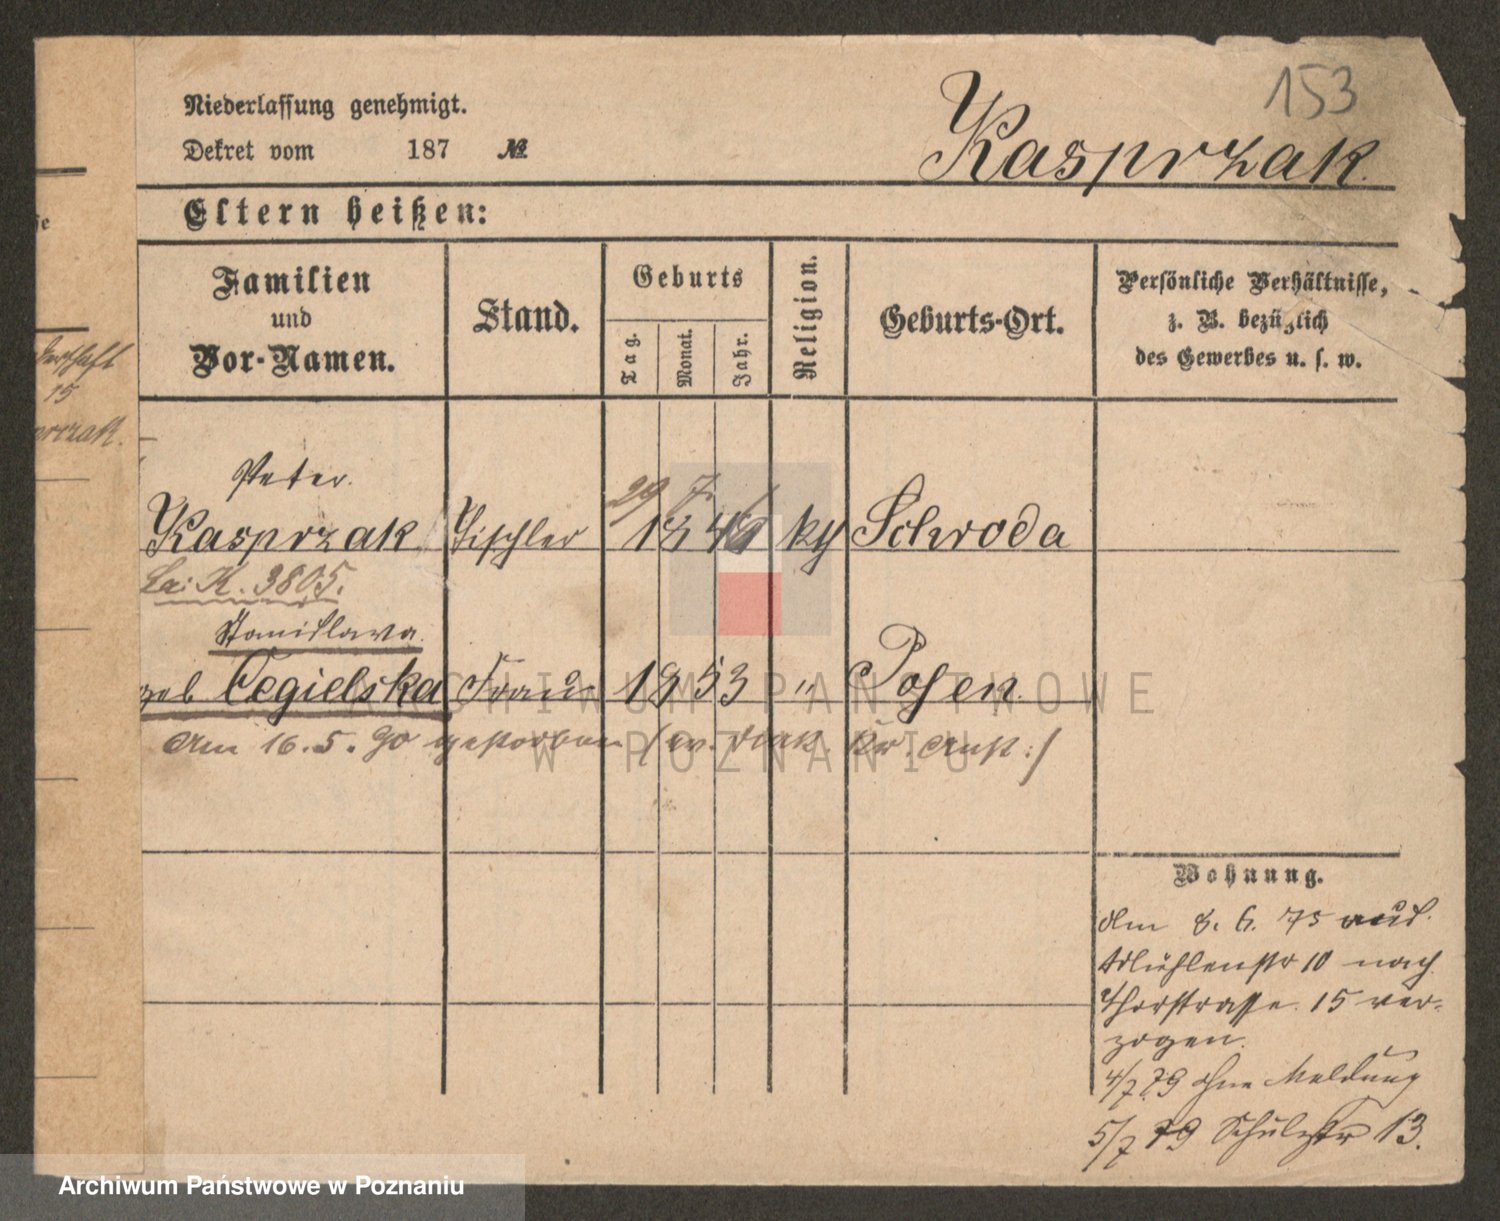 153
Niederlassung genehmigt.
Dekret vom 187 №
Kasprzak.
Eltern heißen:
Familien und Vor-Namen.
Stand.
Geburts
Tag.
Monat.
Jahr.
Religion.
Geburts-Ort.
Persönliche Verhältnisse,
z. B. bezüglich
des Gewerbes u. s. w.
15
Peter.
29/7.
Kasprzak Tischler 1846 kg Schroda
La: K. 3805.
Stanislawa.
geb Cegielska Frau 1853 " Posen.
Am 16.5.90 gestorben
ARCHIWUM PAŃSTWOWE
W POZNANIU
Wohnung.
Am 8. 6. 75 aus
Mühlenstr 10 nach
Thorstrasse 15 ver-
zogen.
4/7 79 ohne Meldung
5/7 79 Schulstr 13.
Archiwum Państwowe w Poznaniu